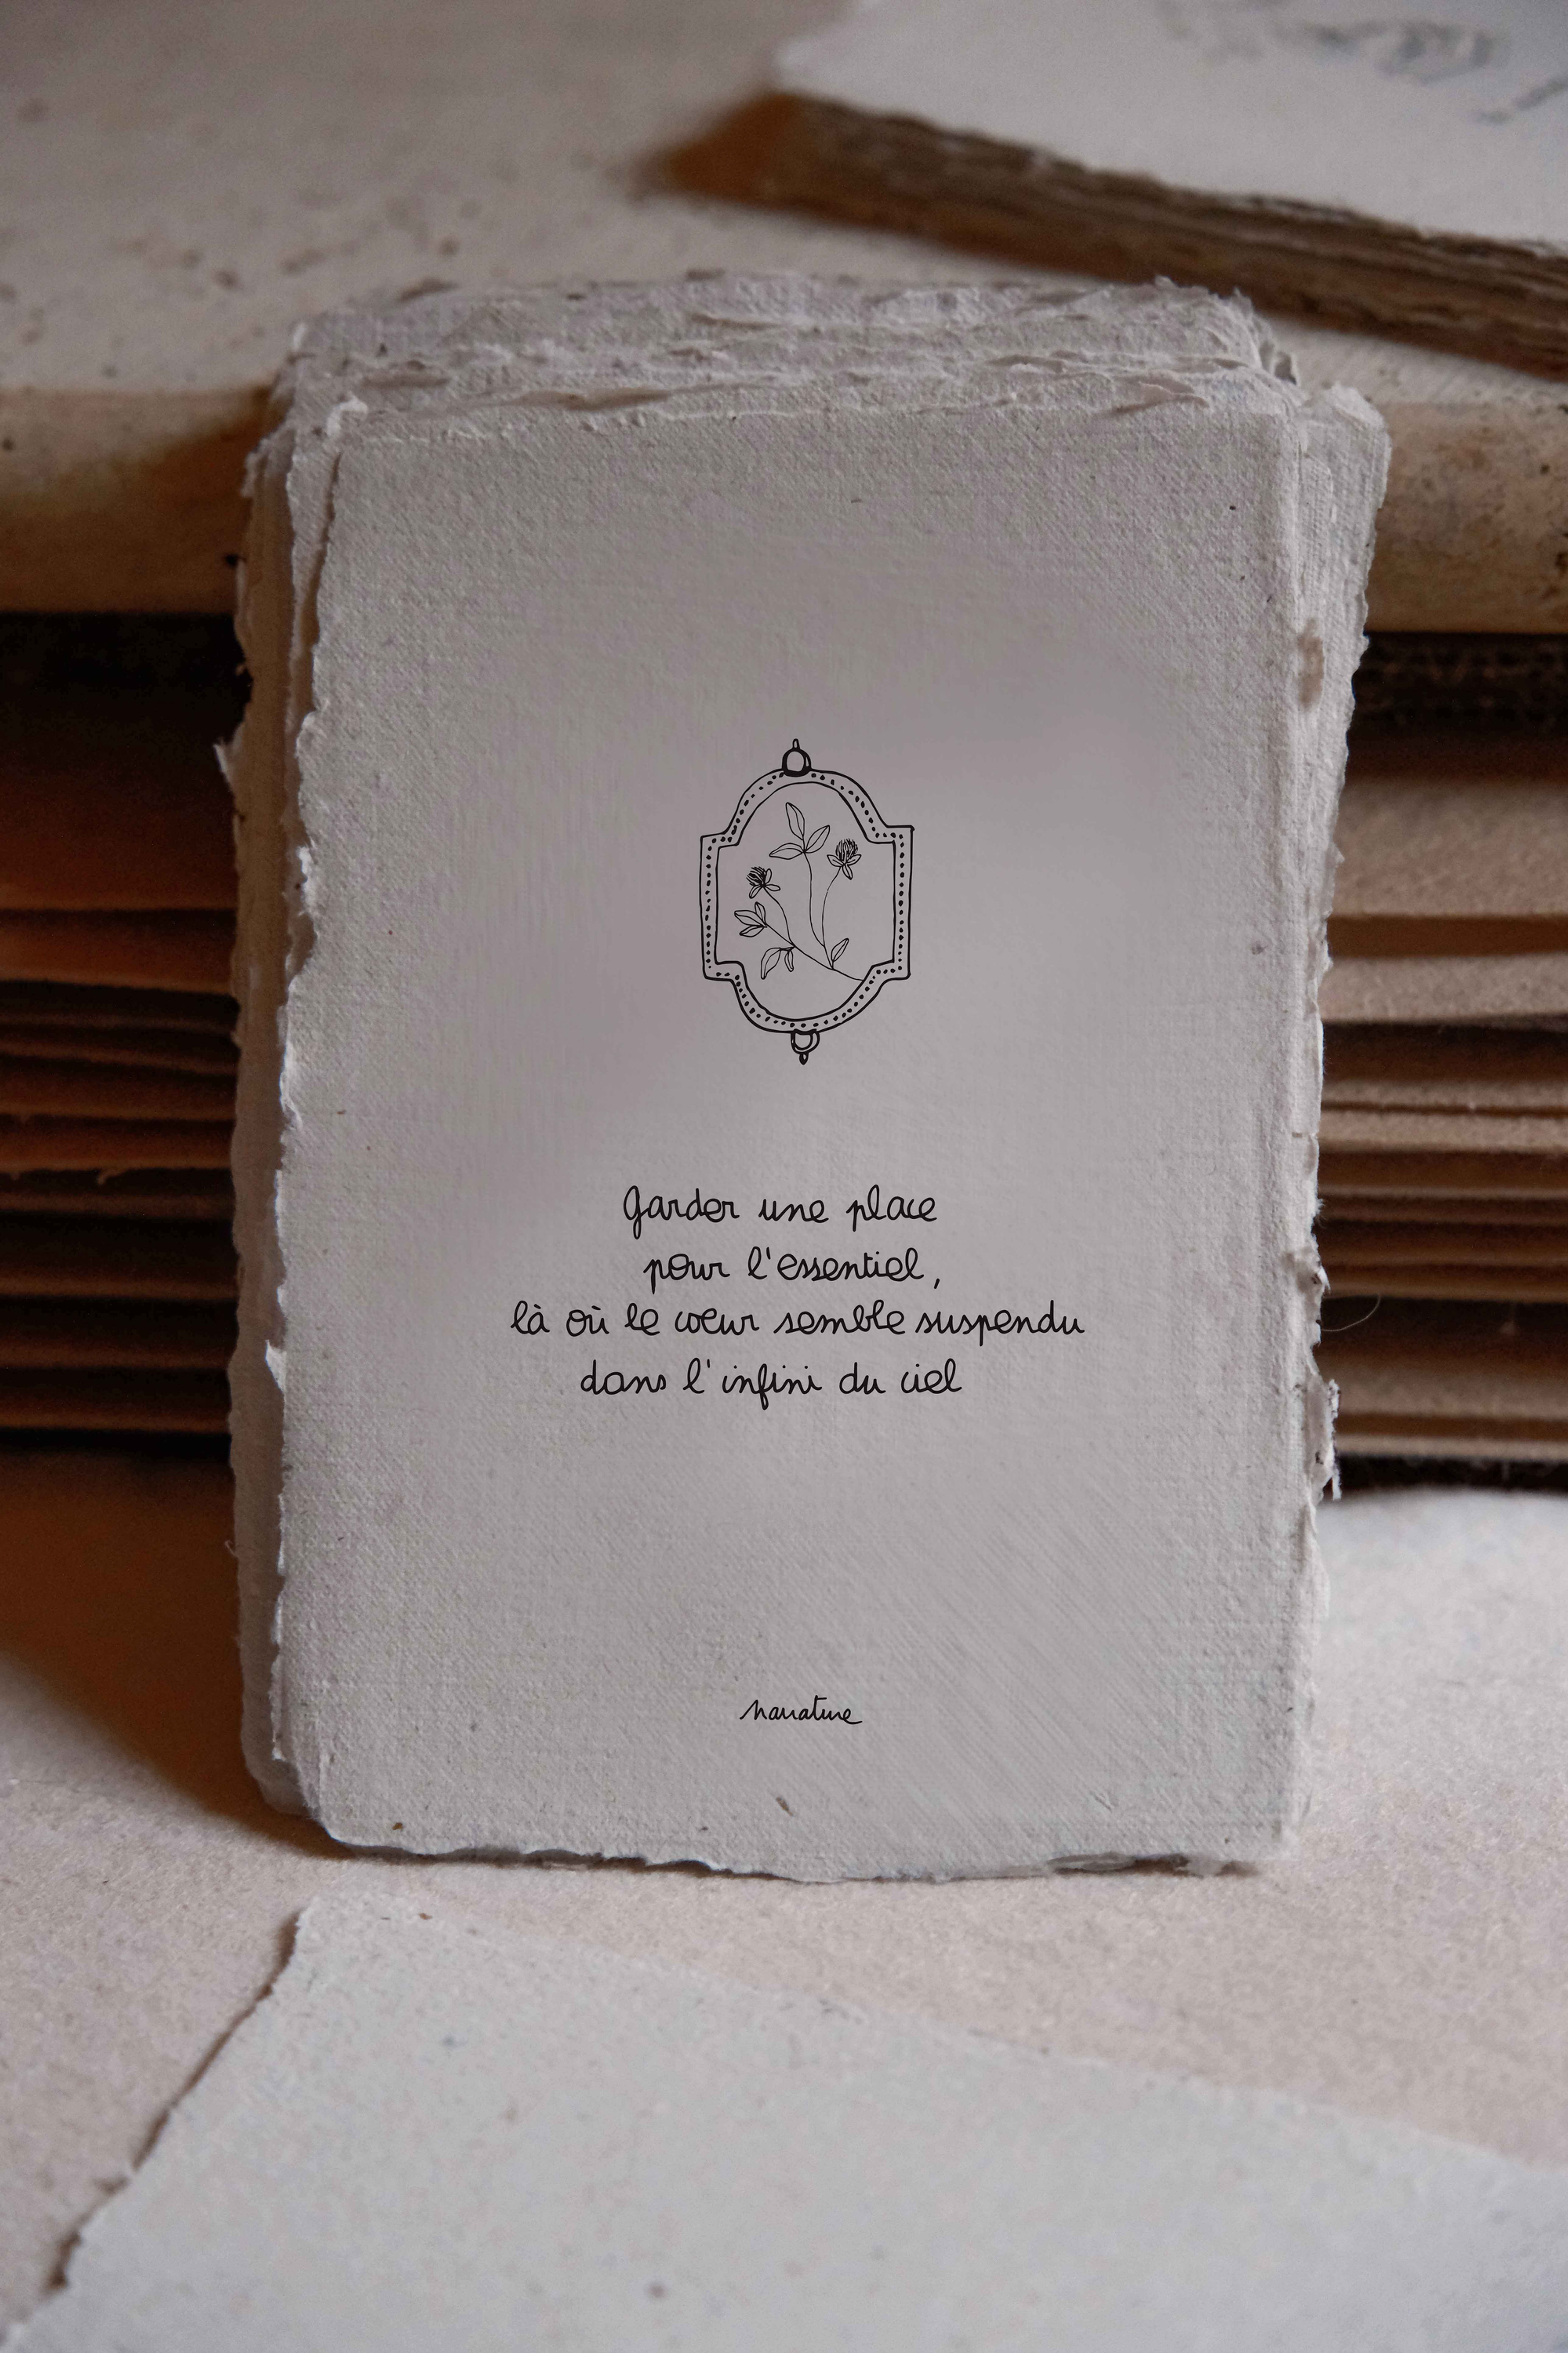 Garder une place
pour l'essentiel,
là où le cœur semble suspendu
dans l'infini du ciel